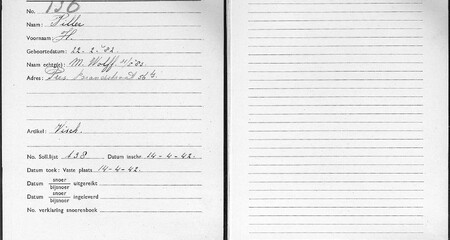 No. 136
Naam: Piller
Voornaam: H.
Geboortedatum: 22-2-'02.
Naam echtg(e): M. Wolff
Adres:
Artikel: Visch.
No. Soll.lijst 138 Datum inschr. 14-4-42.
Datum toek: Vaste plaats 14-4-42.
Datum snoer bijsnoer uitgereikt
Datum snoer bijsnoer ingeleverd
No. verklaring snoerenboek